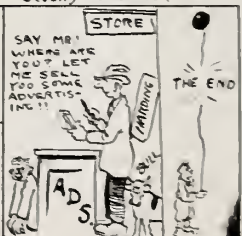 STORE
SAY MR!
WHERE ARE
YOU? LET
ME SELL
YOU SOME
ADVERTIS-
ING!!
HARDING
BILL
ADS.
THE END